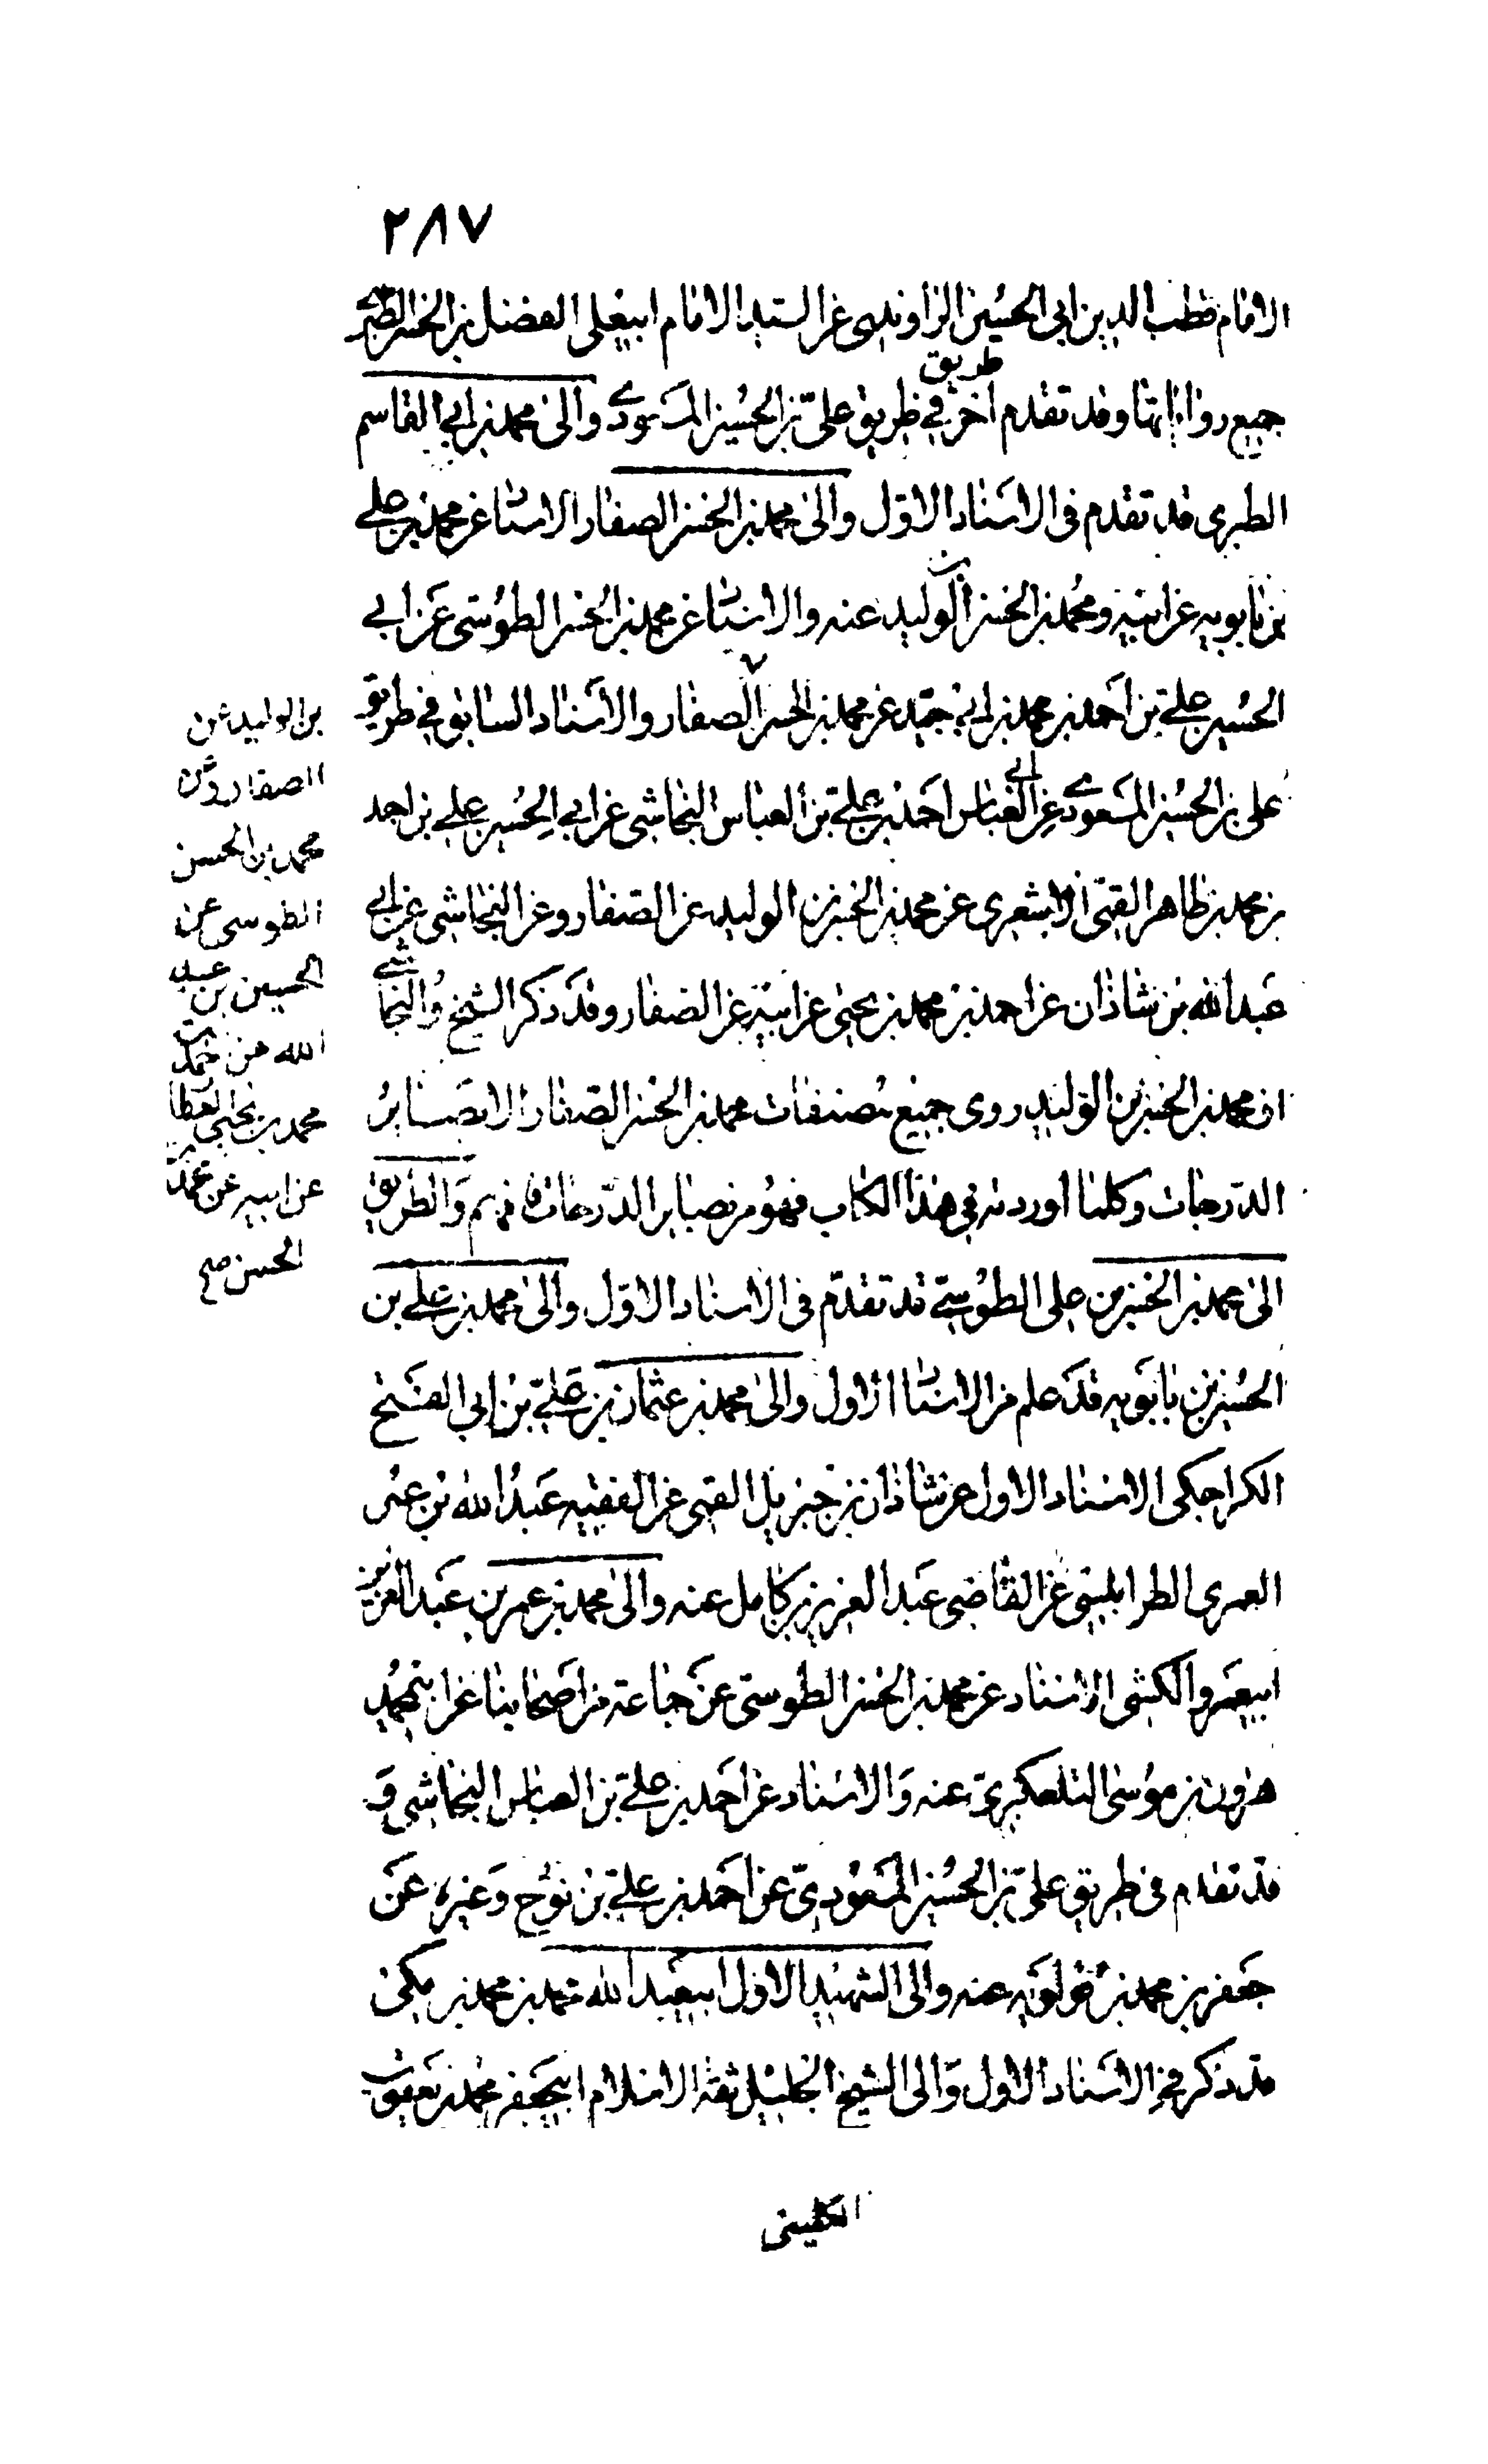 ٢٨٧
الامام قطب الدين ابى الحسين الراوندى عن السيد الامام ابيعلى الفضل بن الحسن الطبرسى
طريق
جميع رواياتها وقد تقدم اخر في طريق على بن الحسين المسعودي والى محمد بن ابي القاسم
الطبرى قد تقدم فى الاسناد الاول والى محمد بن الحسن الصفار الاسناد عن محمد بن علي
بن بابويه عن ابيه ومحمد بن الحسن بن الوليد عنه والاسناد عن محمد بن الحسن الطوسى عن ابي
الحسين علي بن احمد بن محمد بن ابي جيد عن محمد بن الحسن الصفار والاسناد السابق في طريق
على بن الحسين المسعودي عن ابي العباس احمد بن علي بن العباس النجاشى عن ابي الحسين علي بن احمد
بن محمد بن طاهر القمى الاشعرى عن محمد بن الحسن بن الوليد عن الصفار وعن النجاشى عن ابي
عبد الله بن شاذان عن احمد بن محمد بن يحيى عن ابيه عن الصفار وقد ذكر الشيخ والنجاشي
ان محمد بن الحسن بن الوليد روى جميع مصنفات محمد بن الحسن الصفار الا بصاير
الدرجات وكلما اوردته في هذا الكتاب فهو من بصاير الدرجات فافهم والطريق
الى محمد بن الحسن بن على الطوسي قد تقدم فى الاسناد الاول والى محمد بن علي بن
الحسين بن بابويه قد علم من الاسناد الاول والى محمد بن عثمان بن علي بن ابى الفتح
الكراجكى الاسناد الاول عن شاذان بن جبريل القمى عن الفقيه عبد الله بن عمر
العمرى الطرابلسى عن القاضى عبد العزيز بن كامل عنه والى محمد بن عمر بن عبد العزيز
ابيعمرو الكشى الاسناد عن محمد بن الحسن الطوسى عن جماعة من اصحابنا عن ابيمحمد
هرون بن موسى التلعكبرى عنه والاسناد عن احمد بن علي بن العباس النجاشى و
قد تقدم فى طريق على بن الحسين المسعودى عن احمد بن علي بن نوح وغيره عن
جعفر بن محمد بن قولويه عنه والى الشهيد الاول ابيعبد الله محمد بن محمد بن مكى
قد ذكر في الاسناد الاول والى الشيخ الجليل ثقة الاسلام ابيجعفر محمد بن يعقوب
الكلينى
بن الوليد عن
الصفار وعن
محمد بن الحسن
الطوسى عن
الحسين بن عبيد
الله عن احمد بن
محمد بن يحيى العطار
عن ابيه عن محمد بن
الحسن صح